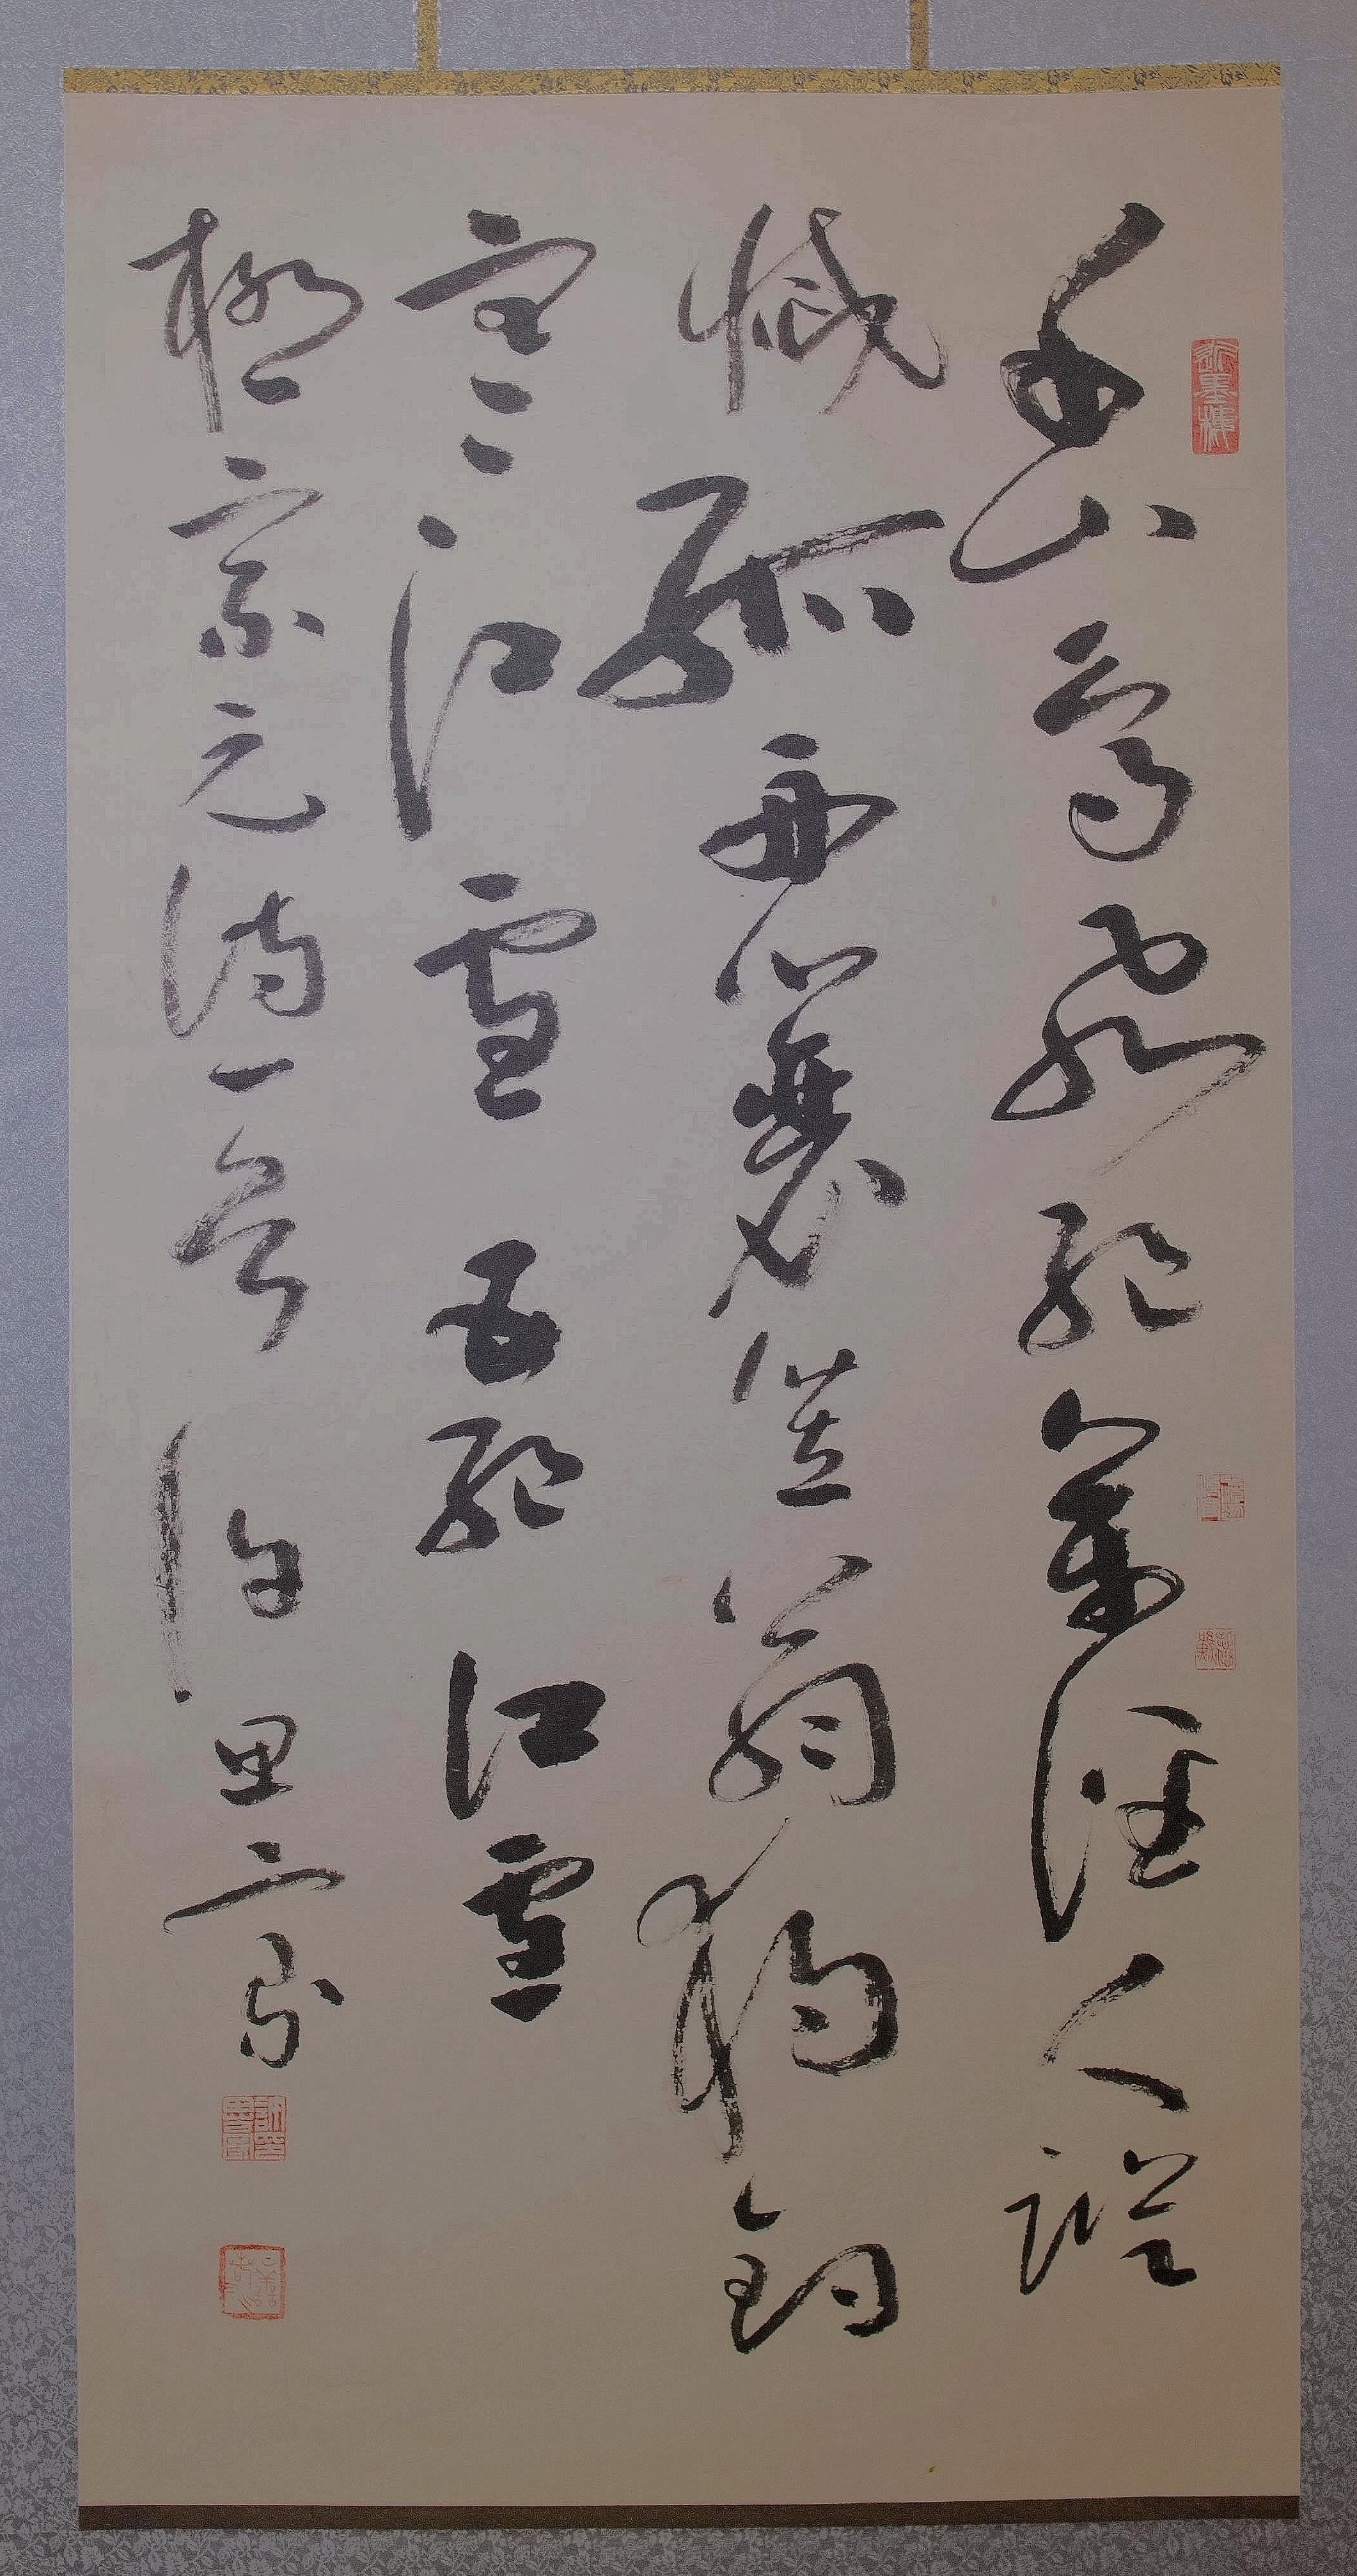 千山鳥飛絕萬徑人蹤
滅孤舟蓑笠翁獨釣
寒江雪 五絕 江雪
柳宗元詩一首 許